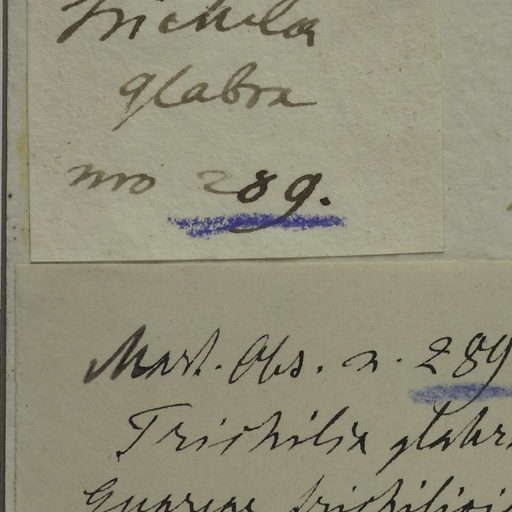 Trichilia
glabra
nro 289.
Mart. Obs. n. 289
Trichilia glabr
Guarea trichilioi